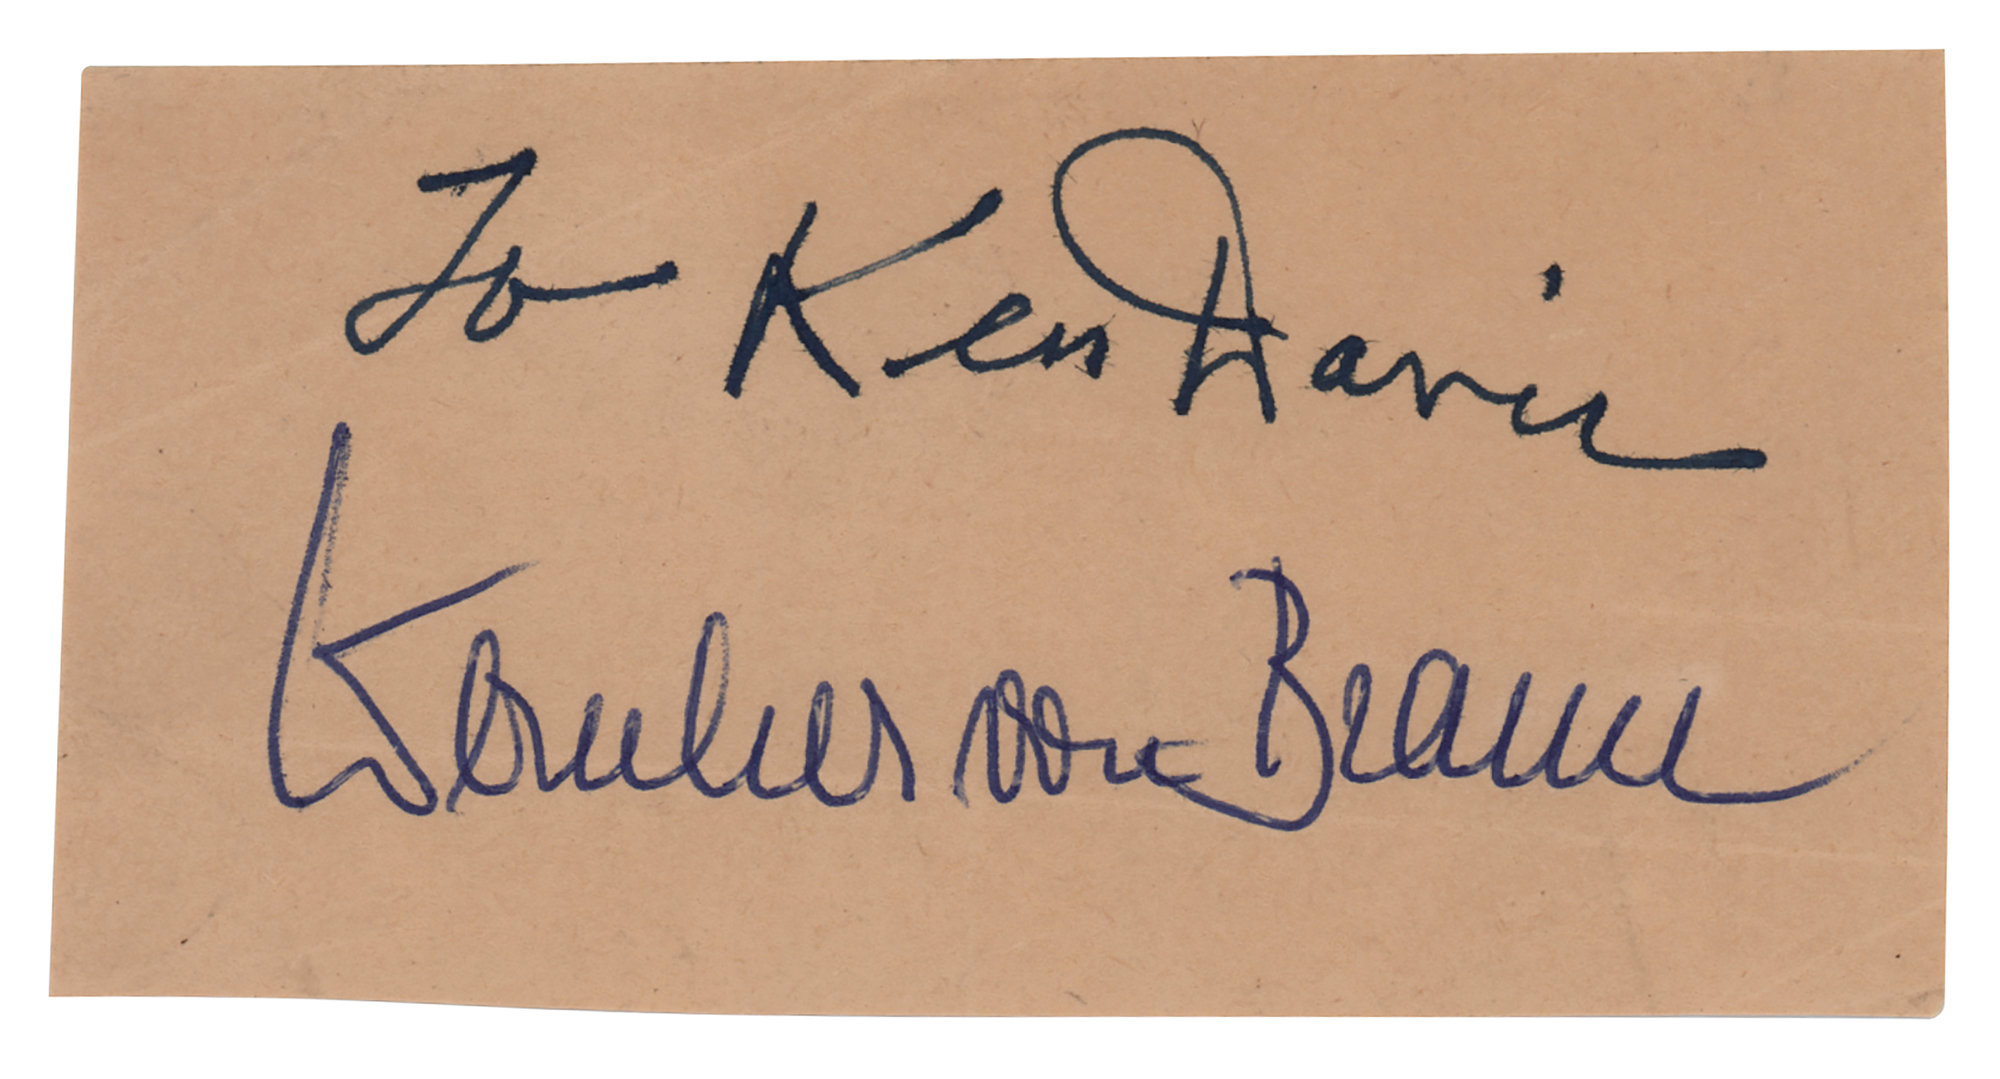 To Ken Davis
Wernher von Braun